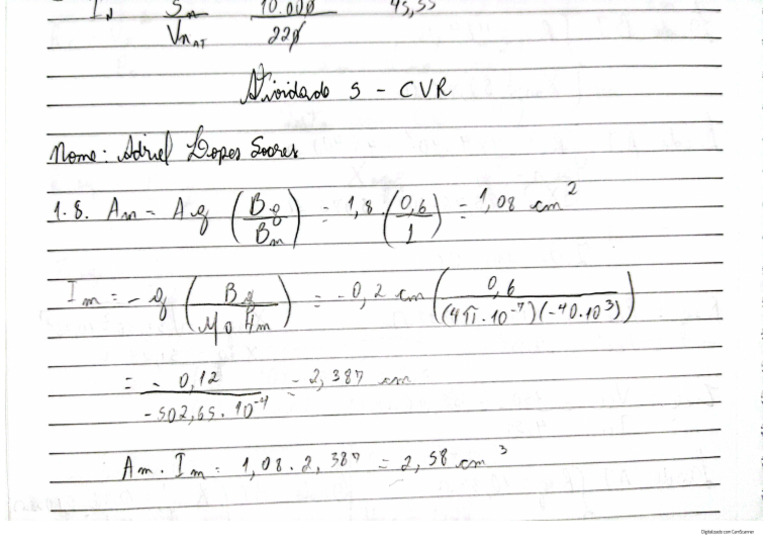 I_N S_n / V_{n AT} 10.000 / 220 45,55
Atividade 5 - CVR
Nome: Adriel Lopes Soares
1.8. Am = Ag (Bg / Bm) = 1,8 . (0,6 / 1) = 1,08 cm²
Im = - g (Bg / μo Hm) = -0,2 cm (0,6 / (4π.10⁻⁷)(-40.10³))
= - 0,12 / -502,65.10⁻⁴ = 2,387 cm
Am . Im = 1,08 . 2,387 = 2,58 cm³
Digitalizado com CamScanner